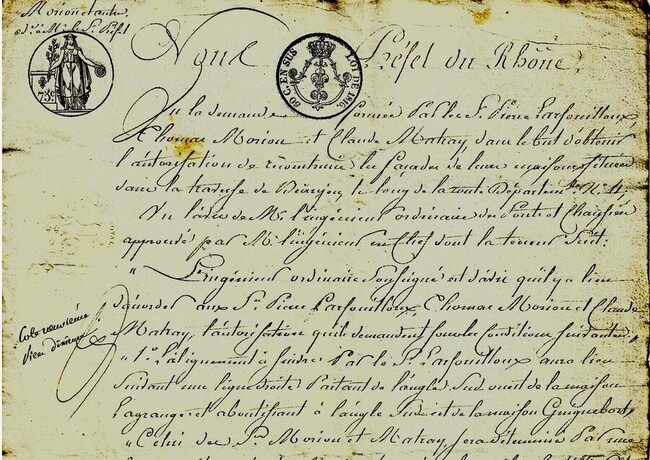 Morion & autres
Nous Préfet du Rhône,
75c
50 C. EN SUS
LOI DE 1816
Vu la demande formée Par les Srs Pierre Larfouilloux
Thomas Morion et Claude Matray, dans le but d'obtenir
l'autorisation de reconstruire les façades de leurs maisons situées
dans la traverse de Beaujeu le long de la route Départem.le N.º 4
Vu l'avis de Mr l'ingénieur ordinaire des Ponts et Chaussées
approuvé par Mr l'ingénieur en Chef dont la teneur Suit:
" L'ingénieur ordinaire Soussigné est d'avis qu'il y a lieu
d'accorder aux Srs Pierre Larfouilloux, Thomas Morion et Claude
Matray, l'autorisation qu'ils demandent sous les Conditions suivantes
" 1º L'alignement à suivre Par le Sr Larfouilloux aura lieu
Suivant une ligne droite Partant de l'angle Sud ouest de la maison
Lagrange et aboutissant à l'angle Sud est de la maison Guignebort
" Celui des Srs Morion et Matray, sera déterminé Par une
Cote neuvième